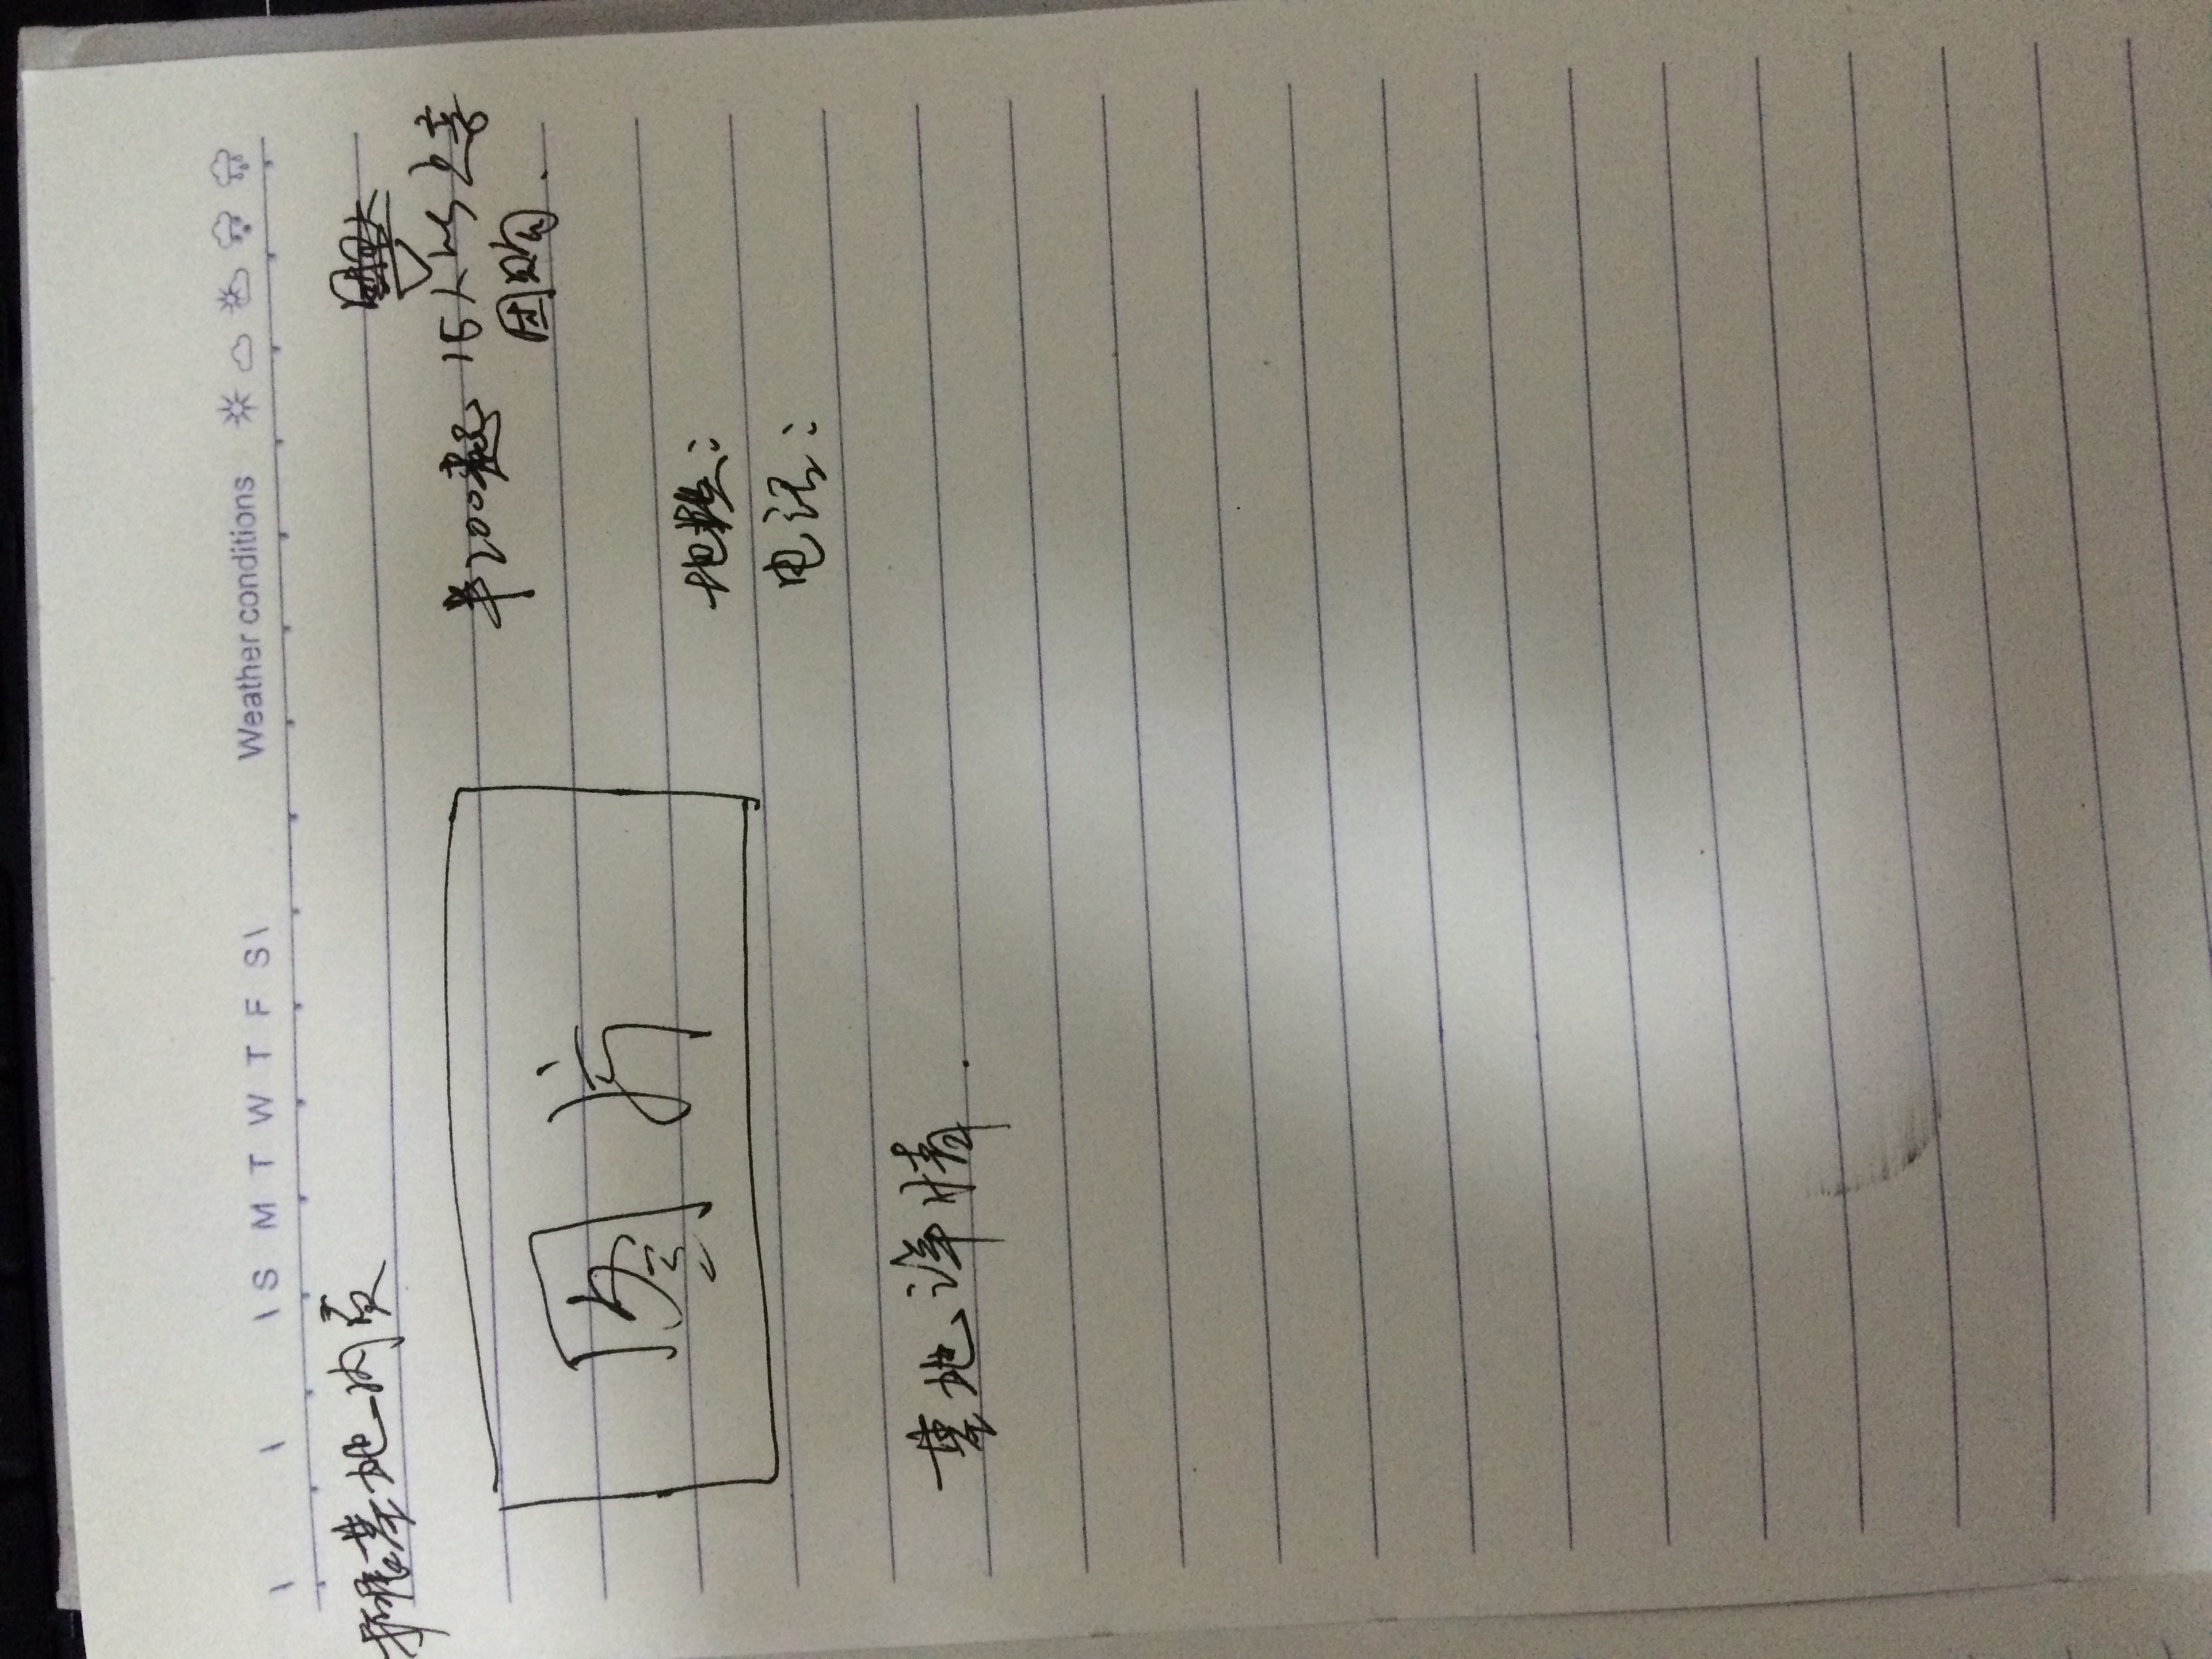 S M T W T F S
Weather conditions
拓展基地内页
¥200起 15人以上享
团购.
图片
地址:
电话:
基地详情.